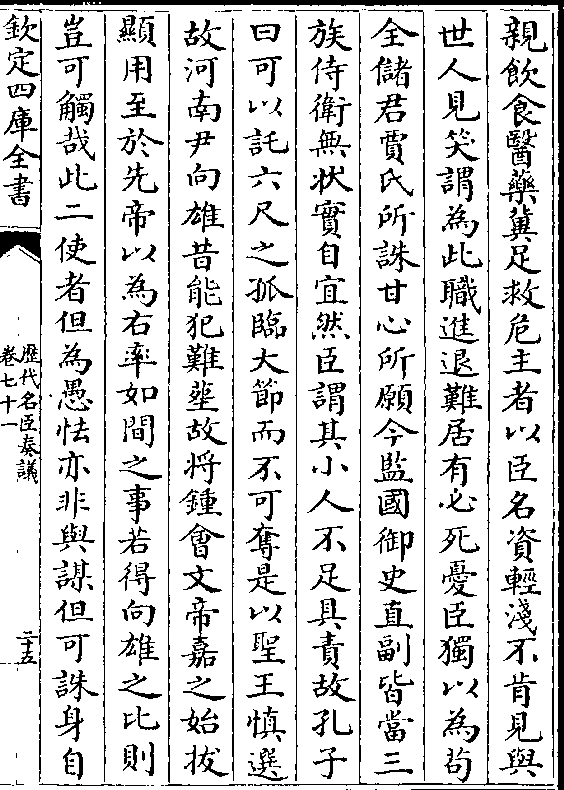 親飲食醫藥冀足救危主者以臣名資輕淺不肯見與
世人見笑謂為此職進退難居有必死憂臣獨以為苟
全儲君賈氏所誅甘心所願今監國御史直副皆當三
族侍衛無状實自宜然臣謂其小人不足具責故孔子
曰可以託六尺之孤臨大節而不可奪是以聖王慎選
故河南尹向雄昔能犯難塟故將鍾㑹文帝嘉之始拔
顯用至於先帝以為右率如間之事若得向雄之比則
豈可觸哉此二使者但為愚怯亦非與謀但可誅身自
欽定四庫全書
歷代名臣奏議
卷七十一
二十五